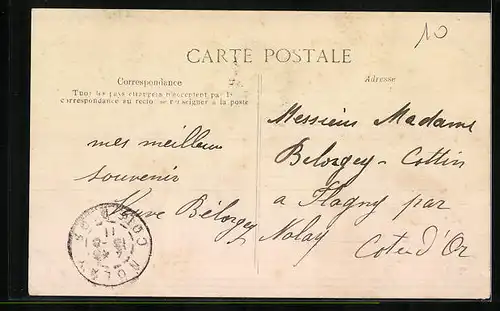 10
CARTE POSTALE
Correspondance
Tous les pays étrangers n'acceptent pas la
correspondance au recto se renseigner à la poste
Adresse
mes meilleurs
souvenir
Veuve Bélorgey
Messieus Madame
Belorgey - Cottin
a Flagny par
Nolay
Cote d'Or
NOLAY